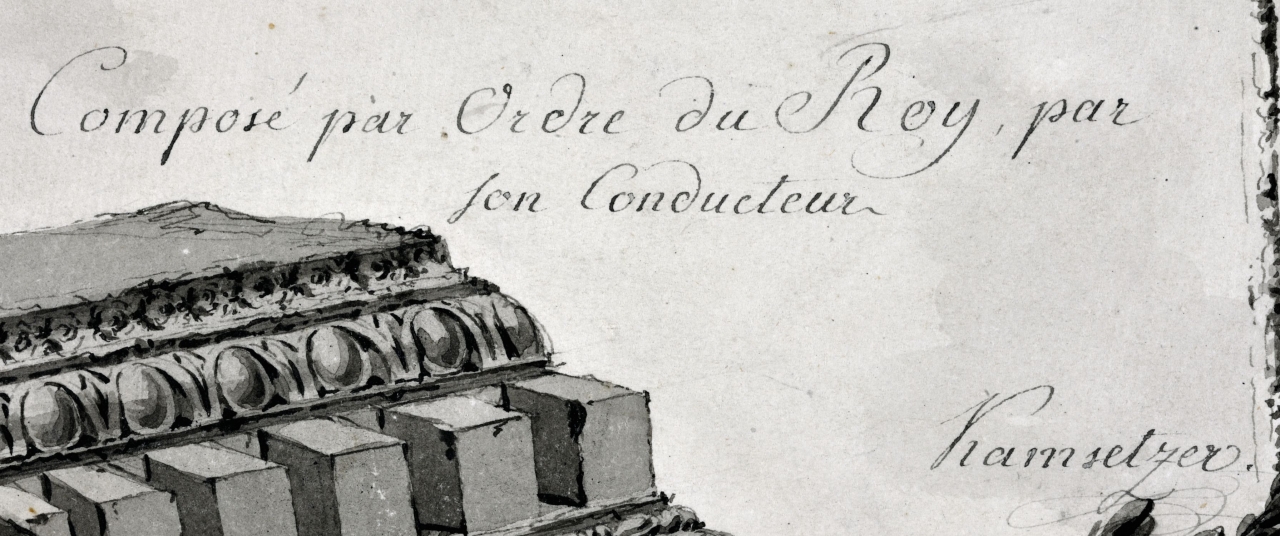 Composé par Ordre du Roy, par
son Conducteur
Kamsetzer.